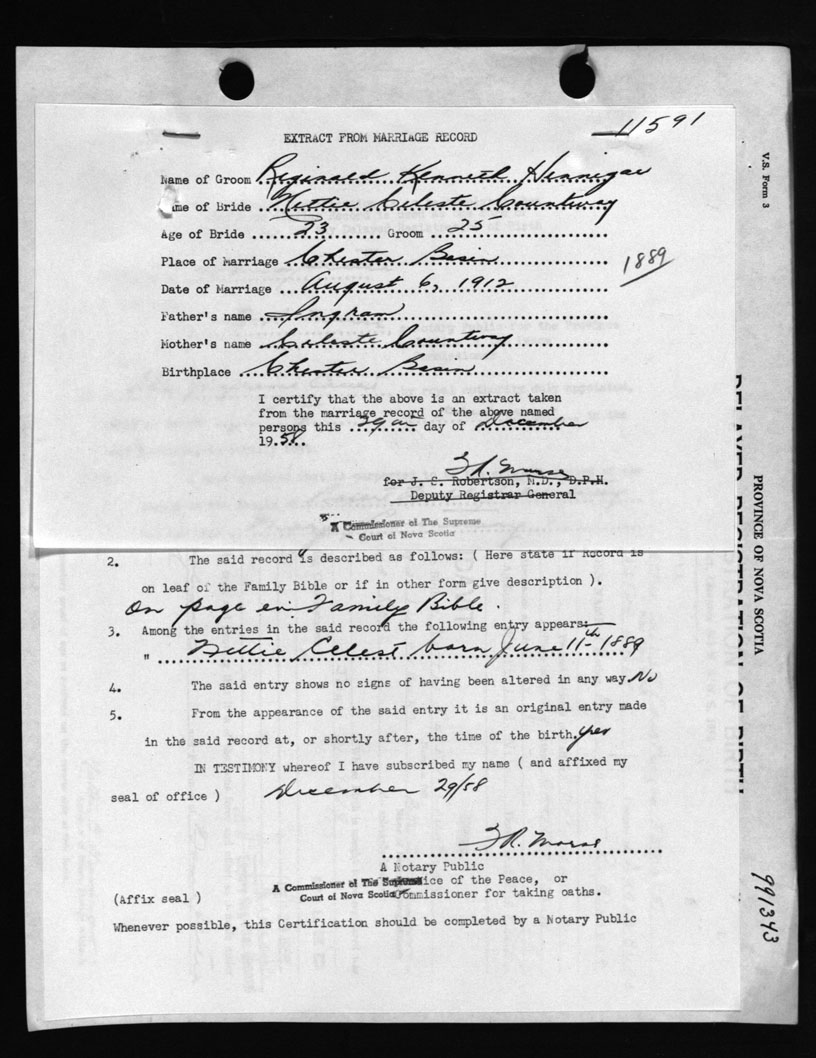 11591
EXTRACT FROM MARRIAGE RECORD
Name of Groom Reginald Kenneth Hennigar
me of Bride Nettie Celeste Countway
Age of Bride 23 Groom 25
Place of Marriage Chester Basin
1889
Date of Marriage August 6, 1912
Father's name Ingram
Mother's name Celeste Countway
Birthplace Chester Basin
I certify that the above is an extract taken
from the marriage record of the above named
persons this 29 day of December
19.58.
for J. S. Robertson, M.D., D.P.H.
Deputy Registrar General
A Commissioner of The Supreme
Court of Nova Scotia
2. The said record is described as follows: ( Here state if Record is
on leaf of the Family Bible or if in other form give description ).
On page in Family Bible.
3. Among the entries in the said record the following entry appears:
" Nettie Celest born June 11th 1889
4. The said entry shows no signs of having been altered in any way. No
5. From the appearance of the said entry it is an original entry made
in the said record at, or shortly after, the time of the birth. yes
IN TESTIMONY whereof I have subscribed my name ( and affixed my
seal of office ) December 29/58
A Notary Public
A Commissioner of The Supreme ice of the Peace, or
(Affix seal ) Court of Nova Scotia Commissioner for taking oaths.
Whenever possible, this Certification should be completed by a Notary Public
V.S. Form 3
PROVINCE OF NOVA SCOTIA
DELAYED REGISTRATION OF BIRTH
991343